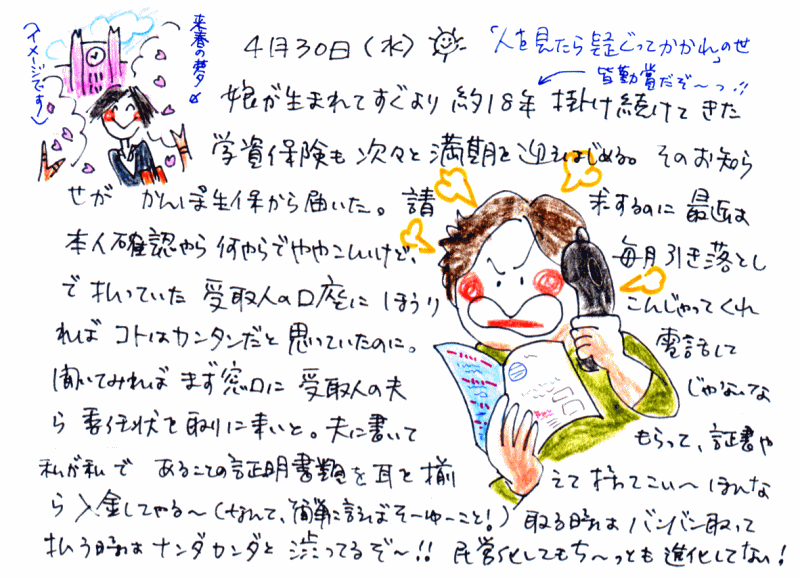 来春の夢
(イメージです)
4月30日(水)
「人を見たら疑ぐってかかれ」のせ
皆勤賞だぞ〜っ!!
娘が生まれてすぐより 約18年 掛け続けてきた
学資保険も 次々と 満期を 迎えはじめる。 そのお知ら
せが かんぽ生保から届いた。 請 求するのに 最近は
本人確認やら 何やらでややこしいけど、 毎月引き落とし
で 払っていた 受取人の口座に ほうり こんじゃってくれ
れば コトはカンタンだと 思っていたのに。 電話して
聞いてみれば まず窓口に 受取人の夫 じゃないな
ら 委任状を 取りに来いと。夫に書いて もらって、証書や
私が私で あることの証明書類を 耳を 揃 えて 持ってこい〜 ほんな
ら 入金してやる〜(なんて、簡単に言えばそーゆーこと!) 取る時は バンバン取って
払う時は ナンダカンダと 渋ってるぞ〜!! 民営化してもち〜っとも 進化してない!